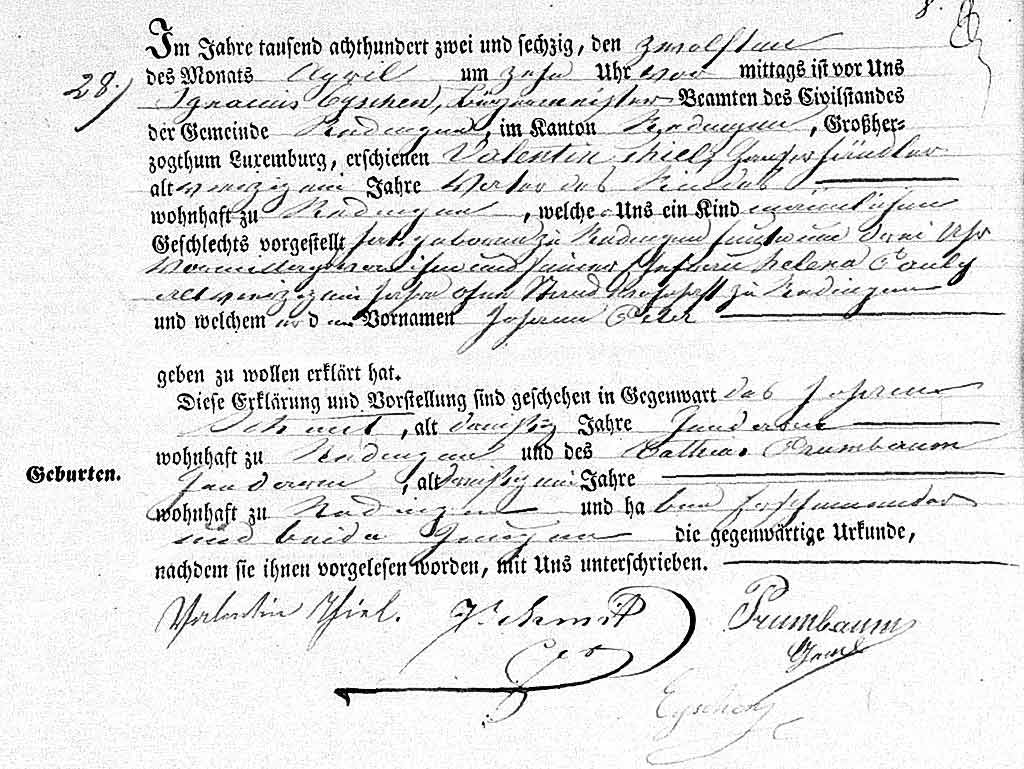 Im Jahre tausend achthundert zwei und sechzig, den zwölften
28.) des Monats April um zehn Uhr vor mittags ist vor Uns
Ignacius Eyschen, Bürgermeister Beamten des Civilstandes
der Gemeinde Redingen, im Kanton Redingen, Großher-
zogthum Luxemburg, erschienen Valentin Thiel
alt vierzig ein Jahre Vater des Kindes
wohnhaft zu Redingen, welche Uns ein Kind männlichen
Geschlechts vorgestellt hat, geboren zu Redingen heute um drei Uhr
Vormittags von ihm und seiner Ehefrau Helena Pauly
alt vierzig ein Jahre ohne Stand wohnhaft zu Redingen
und welchem er d en Vornamen Johann Peter
geben zu wollen erklärt hat.
Diese Erklärung und Vorstellung sind geschehen in Gegenwart des Johann
Schmit, alt dreißig Jahre
wohnhaft zu Redingen und des Mathias Prumbaum
Geburten.
alt dreißig ein Jahre
wohnhaft zu Redingen und ha ben
und beide Zeugen die gegenwärtige Urkunde,
nachdem sie ihnen vorgelesen worden, mit Uns unterschrieben.
Valentin Thiel. Schmit Prumbaum
Eyschen